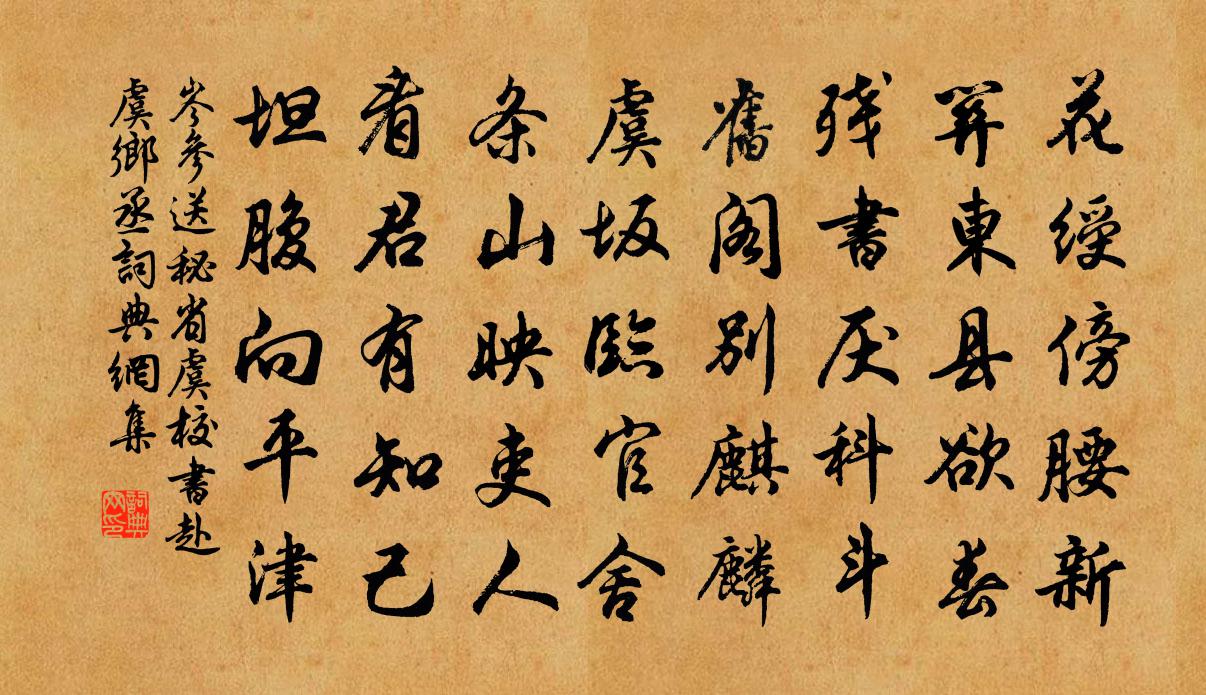 花綬傍腰新
关東县欲春
残書厌科斗
舊阁别麒麟
虞坂臨官舍
条山映吏人
看君有知己
坦腹向平津
岑參送秘省虞校書赴
虞鄉丞詞典網集
詞典网印